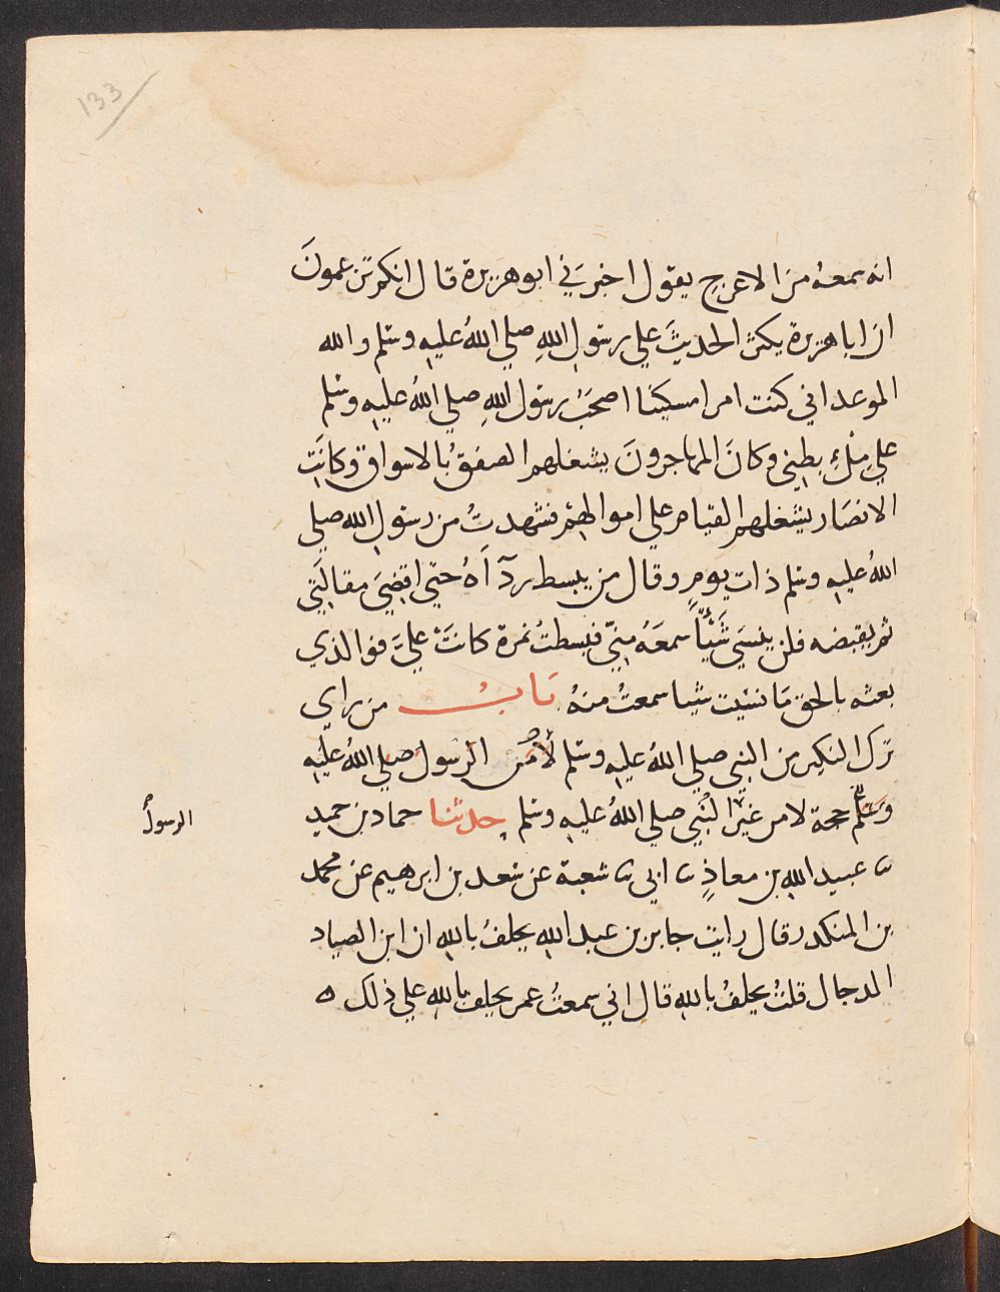 133
انه سمعهُ منَ الاعرج يقول اخبرَني ابو هريرة قال انكم تزعمونَ
ان ابا هريرة يكثر الحديثَ علي رسَولِ اللهِ صلي اللهُ عليهِ وسَلم والله
الموعد اني كنت امرا مسكينا اصحَبُ رسَولَ اللهِ صلي اللهُ عليهِ وسَلم
علي مِلْءِ بطني وكانَ المهاجرونَ يشغلهم الصفقُ بالاسواق وكانَتِ
الانصَار يشغلهم القيام علي اموالهم فشهدتُ من رسَولِ الله صلي
اللهُ عليهِ وسَلم ذات يومٍ وقال من يبسط ردَآءَهُ حتي اقضيَ مقالَتي
ثم يقبضه فلن ينسَي شَيْئًا سمعَهُ مِنّي فبسطتُ نمرة كانَتْ عليَّ فوالذي
بعثه بالحق مَا نسَيت شيا سمعتُ منهُ بَابُ من راي
ترك النكير من النبي صلي اللهُ عليهِ وسَلم لأمْن الرسَول صلي اللهُ عليهِ
وسَلم حجة لا من غير النَبي صلي اللهُ عليهِ وسَلم حدثنا حماد بن حميد
ثنا عبيد اللهِ بن معاذٍ ثنا ابي ثنا شعبة عن سَعد بن ابرهيم عن محمد
بن المنكدر قال رايت جابر بن عبد اللهِ يحلفُ باللهِ ان ابن الصياد
الدجال قلتُ يحلفُ باللهِ قال اني سمعتُ عمر يحلف باللهِ علي ذلك ه
الرسولُ